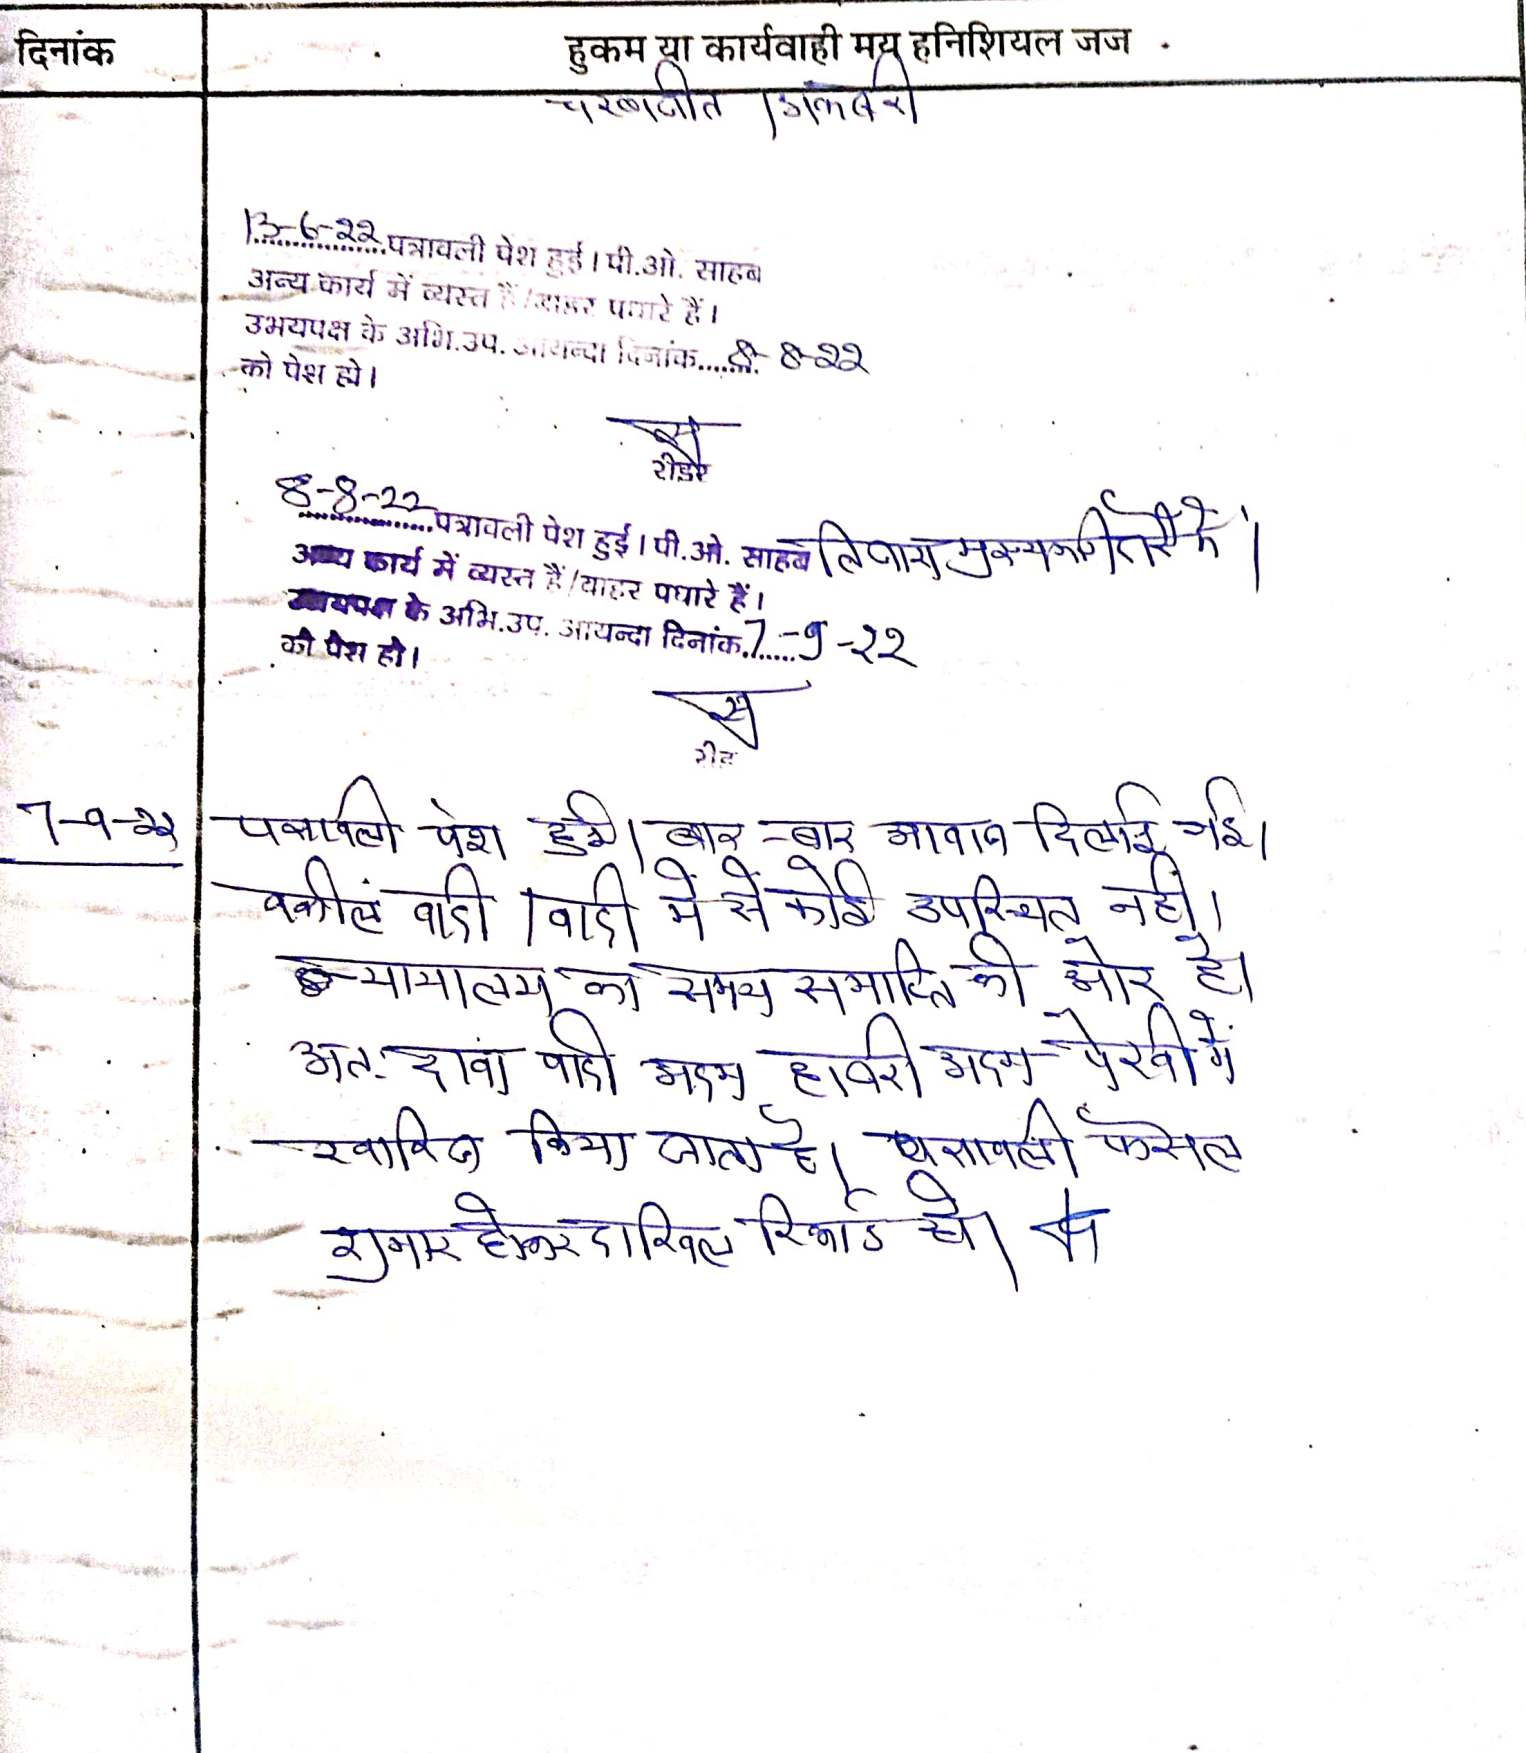 दिनांक
हुकम या कार्यवाही मय हनिशियल जज
चरणजीत / अकबरी
13-6-22 पत्रावली पेश हुई। पी.ओ. साहब
अन्य कार्य में व्यस्त हैं/बाहर पधारे हैं।
उभयपक्ष के अभि.उप. आयन्दा दिनांक....8-8-22
को पेश हो।
रीडर
8-8-22 पत्रावली पेश हुई। पी.ओ. साहब
अन्य कार्य में व्यस्त हैं/बाहर पधारे हैं।
उभयपक्ष के अभि.उप. आयन्दा दिनांक 7-9-22
को पेश हो।
रीड
7-9-22
पत्रावली पेश हुई। बार-बार आवाज दिलाई गई।
वकील वादी / वादी में से कोई उपस्थित नहीं।
न्यायालय का समय समाप्ति की ओर है।
अतः दावा वादी अदम हाजरी अदम पैरवी में
खारिज किया जाता है। पत्रावली फैसल
शुमार होकर दाखिल रिकार्ड हो।